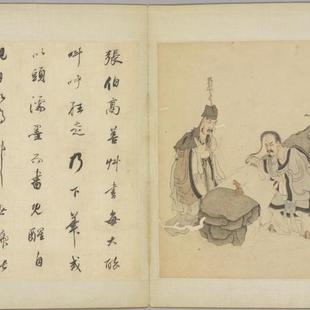 張伯高善艸書每大醉
叫呼狂走乃下筆或
以頭濡墨而書既醒自